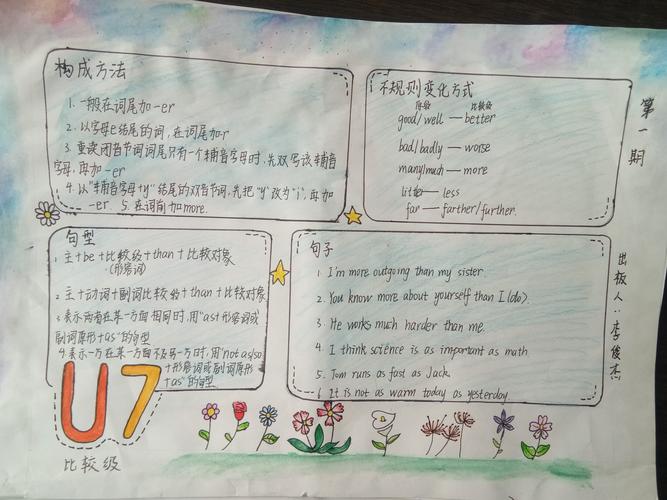 构成方法
1. 一般在词尾加-er
2. 以字母e结尾的词,在词尾加-r
3. 重读闭音节词词尾只有一个辅音字母时,先双写该辅音
字母,再加-er
4. 以"辅音字母+y"结尾的双音节词,先把"y"改为"i",再加
-er 5. 在词前加more.
不规则变化方式
原级 比较级
good/well — better
bad/badly — worse
many/much — more
little — less
far — farther/further.
第一期
句型
1. 主+be+比较级+than+比较对象
(形容词)
2. 主+动词+副词比较级+than+比较对象
3. 表示两者在某一方面相同时,用"as+形容词或
副词原形+as"的句型
4. 表示一方在某一方面不及另一方时,用"not as/so
+形容词或副词原形
+as"的句型
句子
1. I'm more outgoing than my sister
2. You know more about yourself than I (do).
3. He works much harder than me.
4. I think science is as important as math
5. Tom runs as fast as Jack.
6. It is not as warm today as yesterday
出版人:李俊杰
U7
比较级